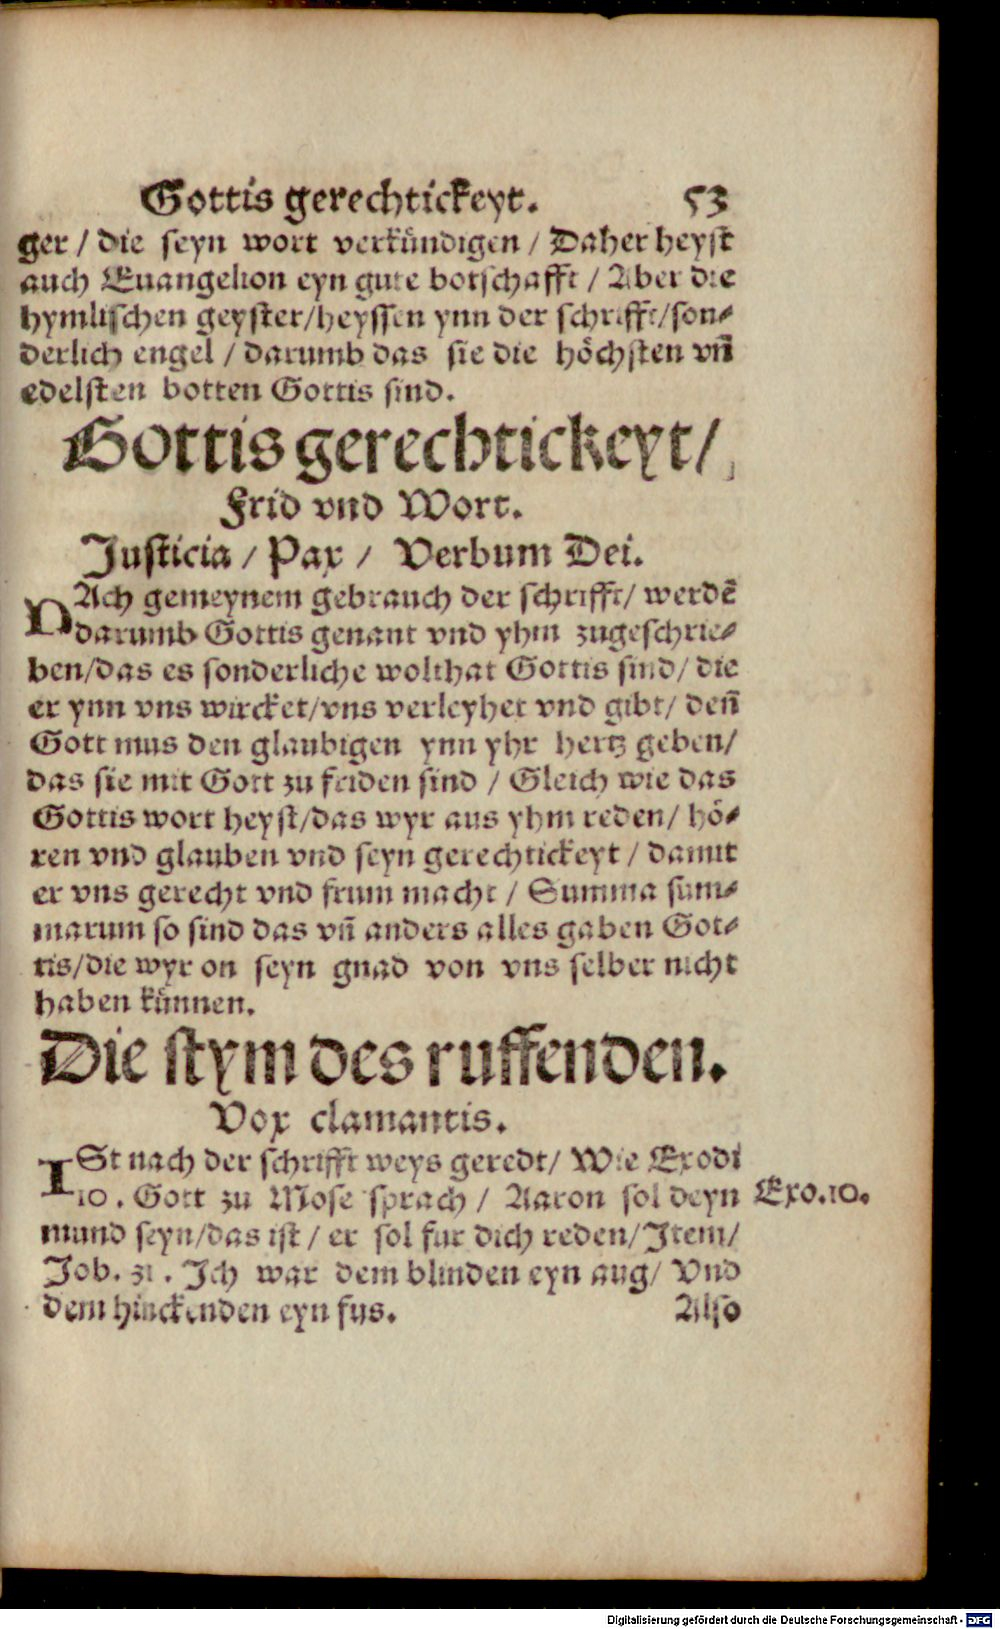 Gottis gerechtickeyt. 53
ger / die seyn wort verkündigen / Daher heyst
auch Euangelion eyn gute botschafft / Aber die
hymlischen geyster/heyssen ynn der schrifft/son-
derlich engel / darumb das sie die höchsten vñ
edelsten botten Gottis sind.
Gottis gerechtickeyt/
Frid vnd Wort.
Justicia / Pax / Verbum Dei.
NAch gemeynem gebrauch der schrifft/ werdē
darumb Gottis genant vnd yhm zugeschrie-
ben/das es sonderliche wolthat Gottis sind/ die
er ynn vns wircket/vns verleyhet vnd gibt/ deñ
Gott mus den glaubigen ynn yhr hertz geben/
das sie mit Gott zu friden sind / Gleich wie das
Gottis wort heyst/das wyr aus yhm reden/ hö-
ren vnd glauben vnd seyn gerechtickeyt / damit
er vns gerecht vnd frum macht / Summa sum-
marum so sind das vñ anders alles gaben Got-
tis/die wyr on seyn gnad von vns selber nicht
haben künnen.
Die stym des ruffenden.
Vox clamantis.
ISt nach der schrifft weys geredt/ Wie Exodi
10. Gott zu Mose sprach / Aaron sol deyn Exo.10.
mund seyn/das ist / er sol fur dich reden/Item/
Job. 31. Ich war dem blinden eyn aug/ Vnd
dem hinckenden eyn fus. Also
Digitalisierung gefördert durch die Deutsche Forschungsgemeinschaft - DFG